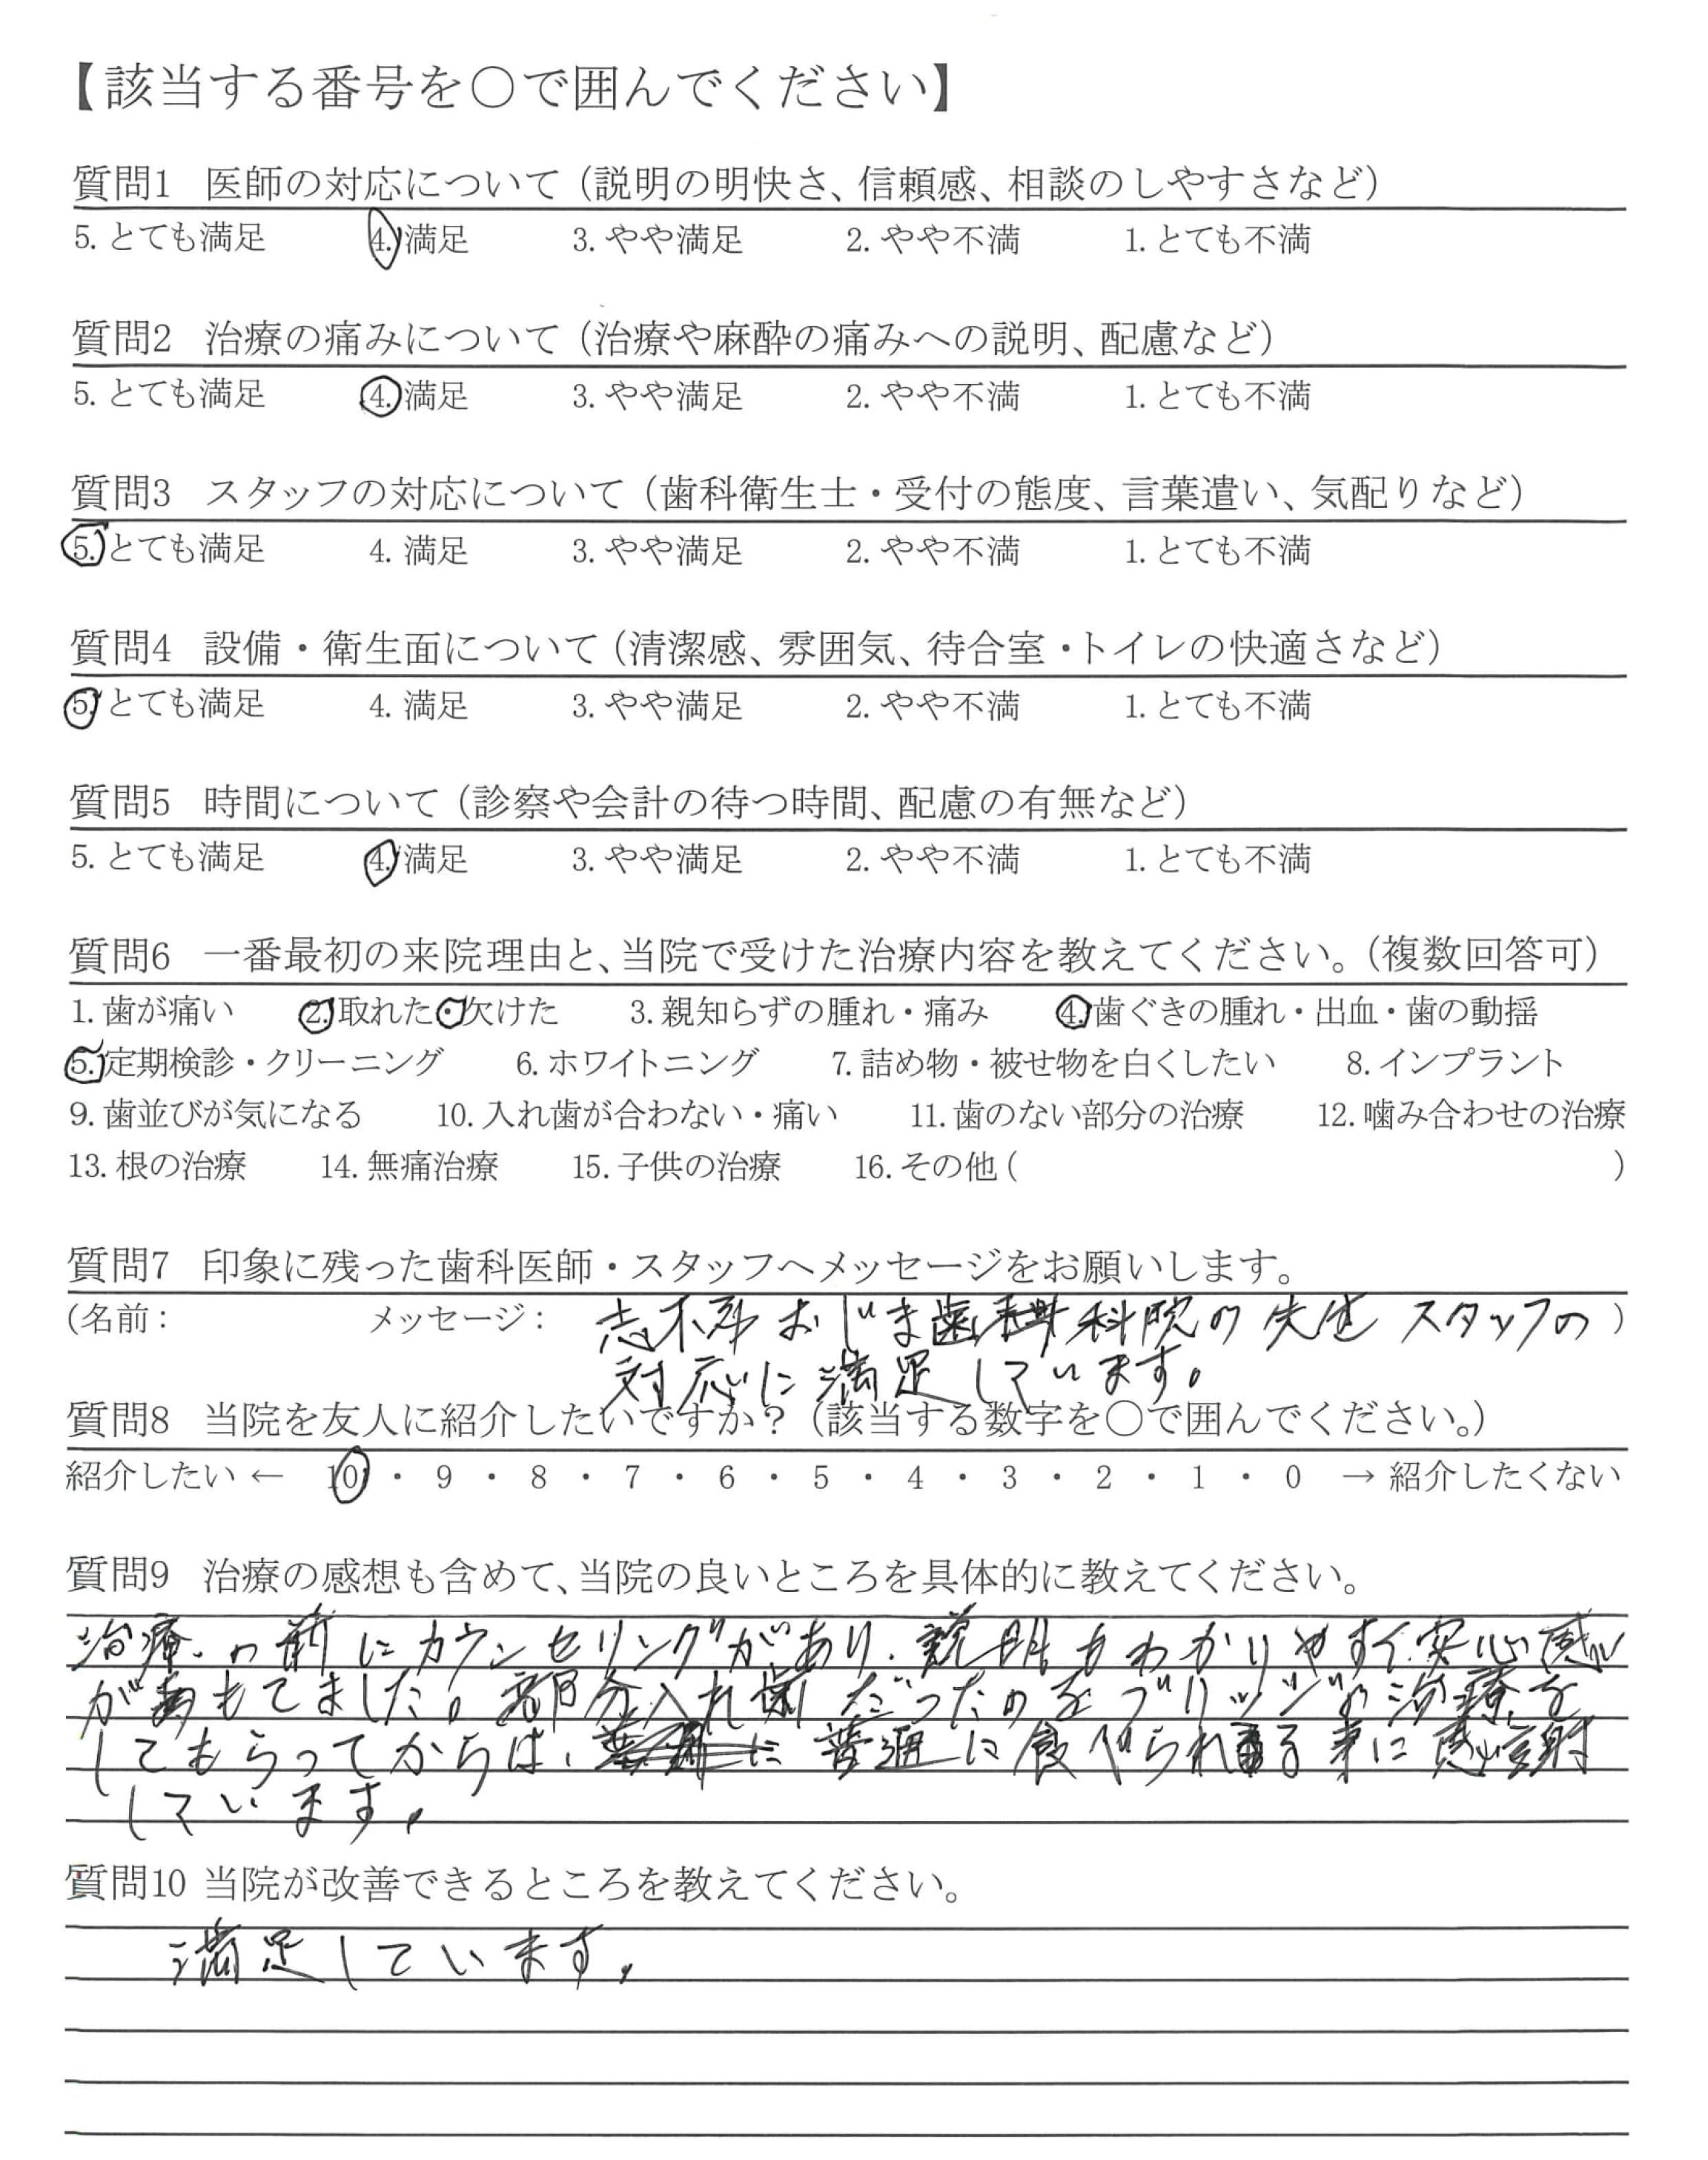 【該当する番号を○で囲んでください】
質問1 医師の対応について（説明の明快さ、信頼感、相談のしやすさなど）
5. とても満足 4. 満足 3. やや満足 2. やや不満 1. とても不満
質問2 治療の痛みについて（治療や麻酔の痛みへの説明、配慮など）
5. とても満足 4. 満足 3. やや満足 2. やや不満 1. とても不満
質問3 スタッフの対応について（歯科衛生士・受付の態度、言葉遣い、気配りなど）
5. とても満足 4. 満足 3. やや満足 2. やや不満 1. とても不満
質問4 設備・衛生面について（清潔感、雰囲気、待合室・トイレの快適さなど）
5. とても満足 4. 満足 3. やや満足 2. やや不満 1. とても不満
質問5 時間について（診察や会計の待つ時間、配慮の有無など）
5. とても満足 4. 満足 3. やや満足 2. やや不満 1. とても不満
質問6 一番最初の来院理由と、当院で受けた治療内容を教えてください。（複数回答可）
1. 歯が痛い 2. 取れた・欠けた 3. 親知らずの腫れ・痛み 4. 歯ぐきの腫れ・出血・歯の動揺
5. 定期検診・クリーニング 6. ホワイトニング 7. 詰め物・被せ物を白くしたい 8. インプラント
9. 歯並びが気になる 10. 入れ歯が合わない・痛い 11. 歯のない部分の治療 12. 噛み合わせの治療
13. 根の治療 14. 無痛治療 15. 子供の治療 16. その他（ ）
質問7 印象に残った歯科医師・スタッフへメッセージをお願いします。
（名前： メッセージ： おじま歯科院の先生 スタッフの ）
対応に満足しています。
質問8 当院を友人に紹介したいですか？（該当する数字を○で囲んでください。）
紹介したい ← 10 ・ 9 ・ 8 ・ 7 ・ 6 ・ 5 ・ 4 ・ 3 ・ 2 ・ 1 ・ 0 → 紹介したくない
質問9 治療の感想も含めて、当院の良いところを具体的に教えてください。
治療の前にカウンセリングがあり、説明もわかりやすく安心感
がもてました。部分入れ歯だったのをブリッジの治療を
してもらってからは、普通に食べられる事に感謝
しています。
質問10 当院が改善できるところを教えてください。
満足しています。